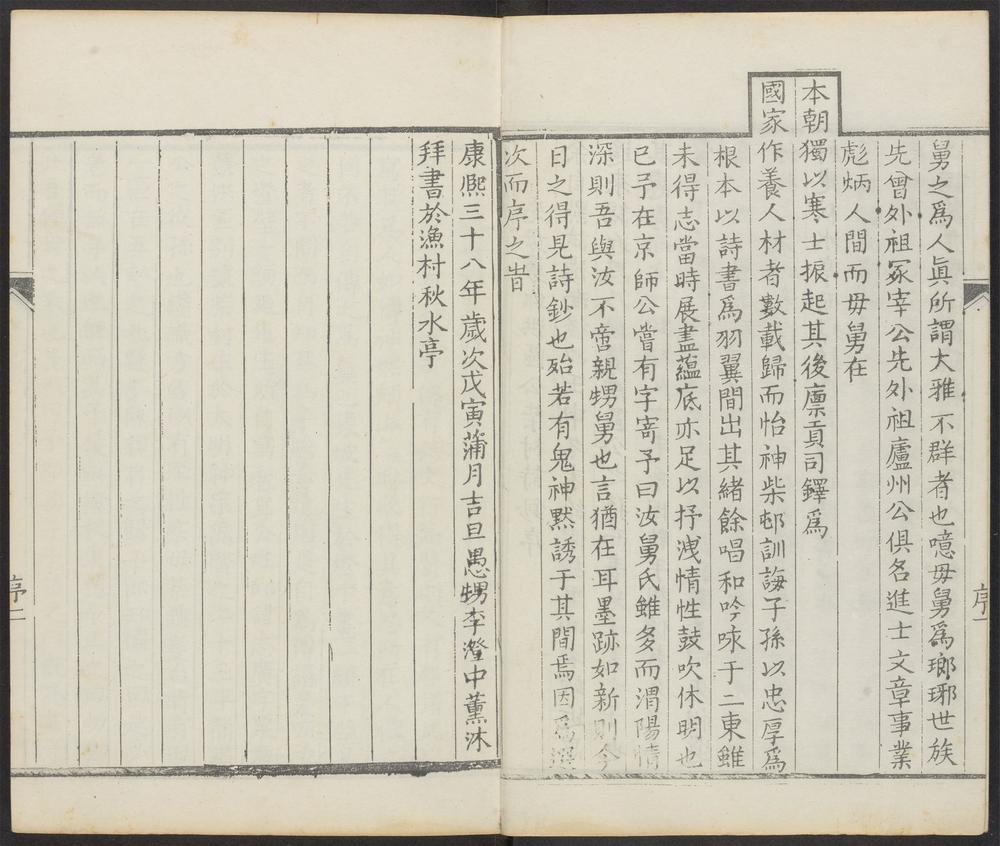 舅之爲人眞所謂大雅不群者也噫毋舅爲瑯琊世族
先曾外祖冢宰公先外祖廬州公俱名進士文章事業
彪炳人間而毋舅在
本朝獨以寒士振起其後廪貢司鐸爲
國家作養人材者數載歸而怡神柴邨訓誨子孫以忠厚爲
根本以詩書爲羽翼間出其緒餘唱和吟咏于二東雖
未得志當時展盡蘊底亦足以抒洩情性鼓吹休明也
已予在京師公嘗有字寄予曰汝舅氏雖多而渭陽情
深則吾與汝不啻親甥舅也言猶在耳墨跡如新則今
日之得見詩鈔也殆若有鬼神默誘于其間焉因爲選
次而序之旹
序一
康熈三十八年歲次戊寅蒲月吉旦愚甥李澄中薰沐
拜書於漁村秋水亭
序二